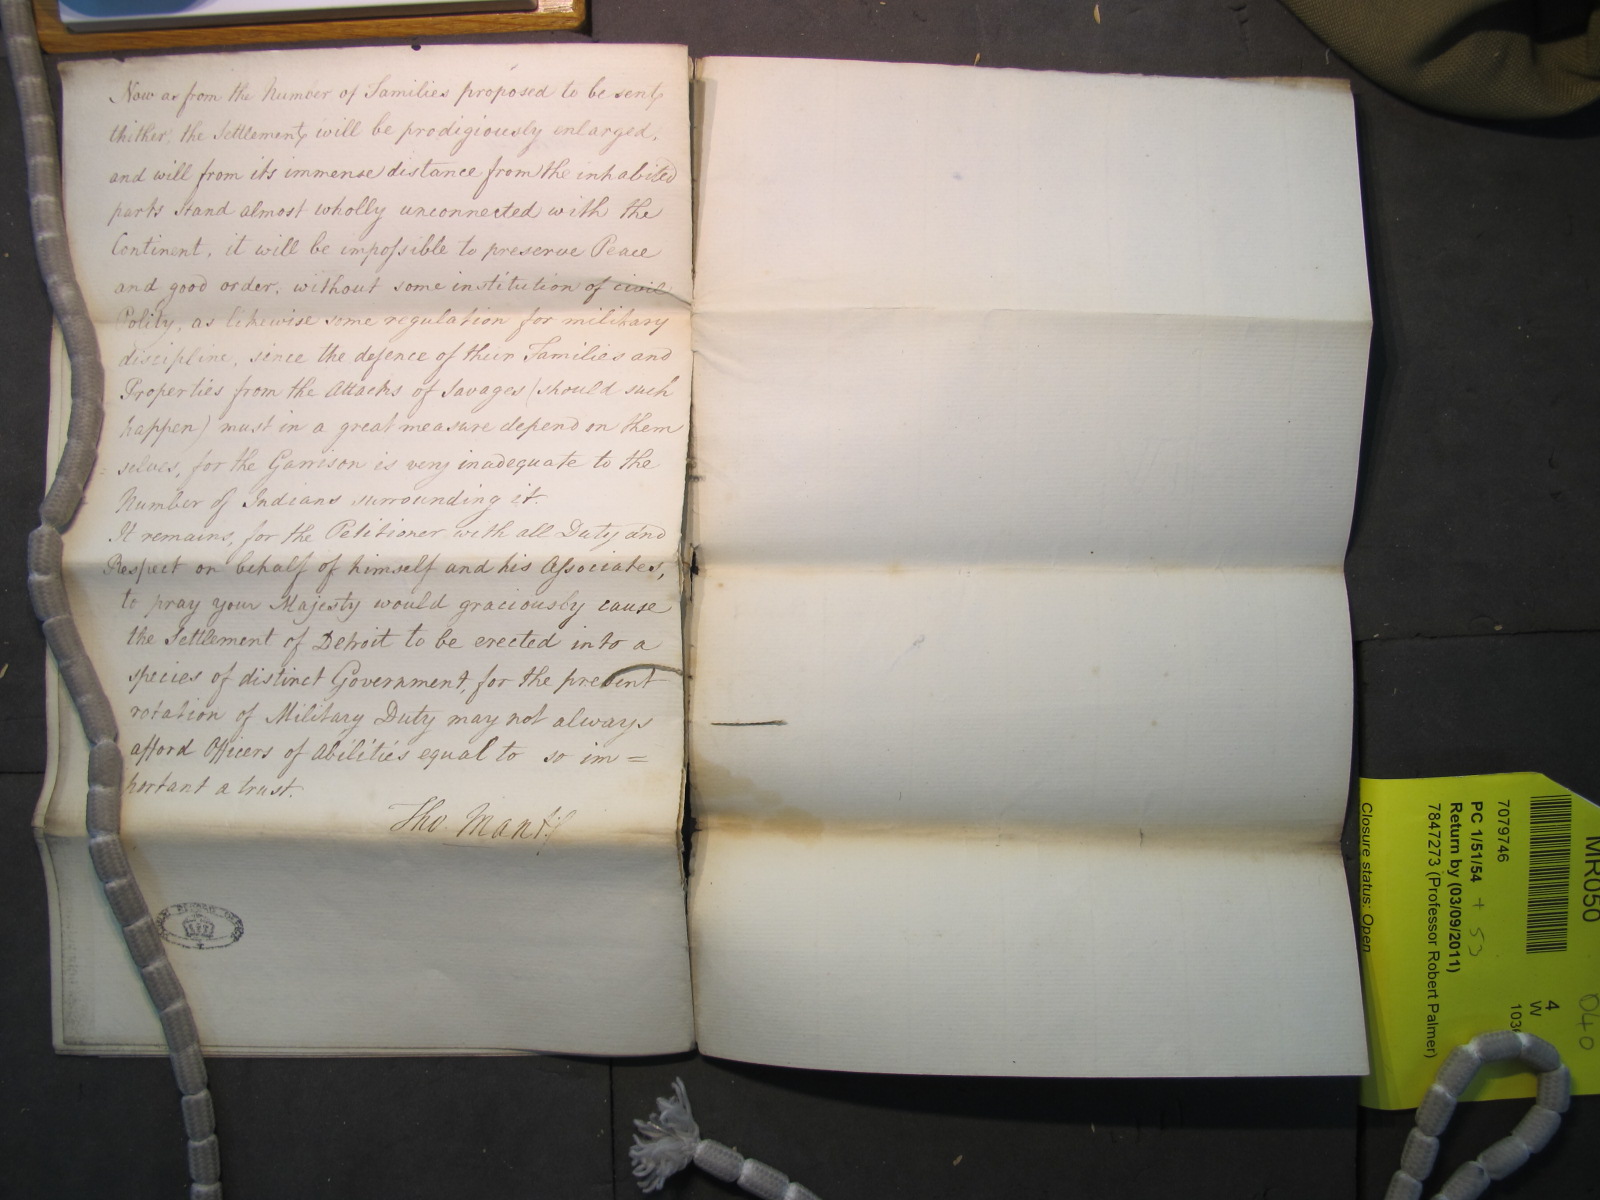 Now as from the Number of Families proposed to be sent
thither, the Settlement will be prodigiously enlarged,
and will from its immense distance from the inhabited
parts stand almost wholly unconnected with the
Continent, it will be impossible to preserve Peace
and good order, without some institution of civil
Polity, as likewise some regulation for military
discipline, since the defence of their Families and
Properties from the Attacks of Savages (should such
happen) must in a great measure depend on them
= selves, for the Garrison is very inadequate to the
Number of Indians surrounding it.
It remains, for the Petitioner with all Duty and
Respect on behalf of himself and his Associates,
to pray your Majesty would graciously cause
the Settlement of Detroit to be erected into a
species of distinct Government, for the present
rotation of Military Duty may not always
afford Officers of Abilities equal to so im =
portant a trust.
Tho. Mant
RECORD
MR050
040
7079746
PC 1/51/54 + 53
Return by (03/09/2011)
7847273 (Professor Robert Palmer)
4
W
103
Closure status: Open